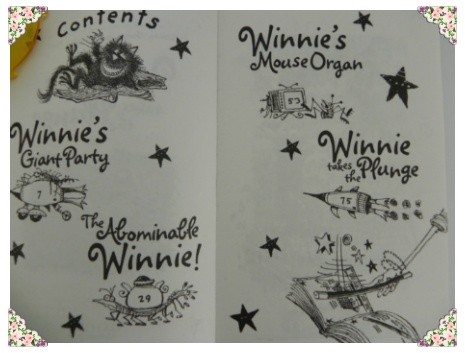 Contents
Winnie's
Giant Party
7
The Abominable
Winnie!
29
Winnie's
Mouse Organ
53
Winnie
takes the Plunge
75